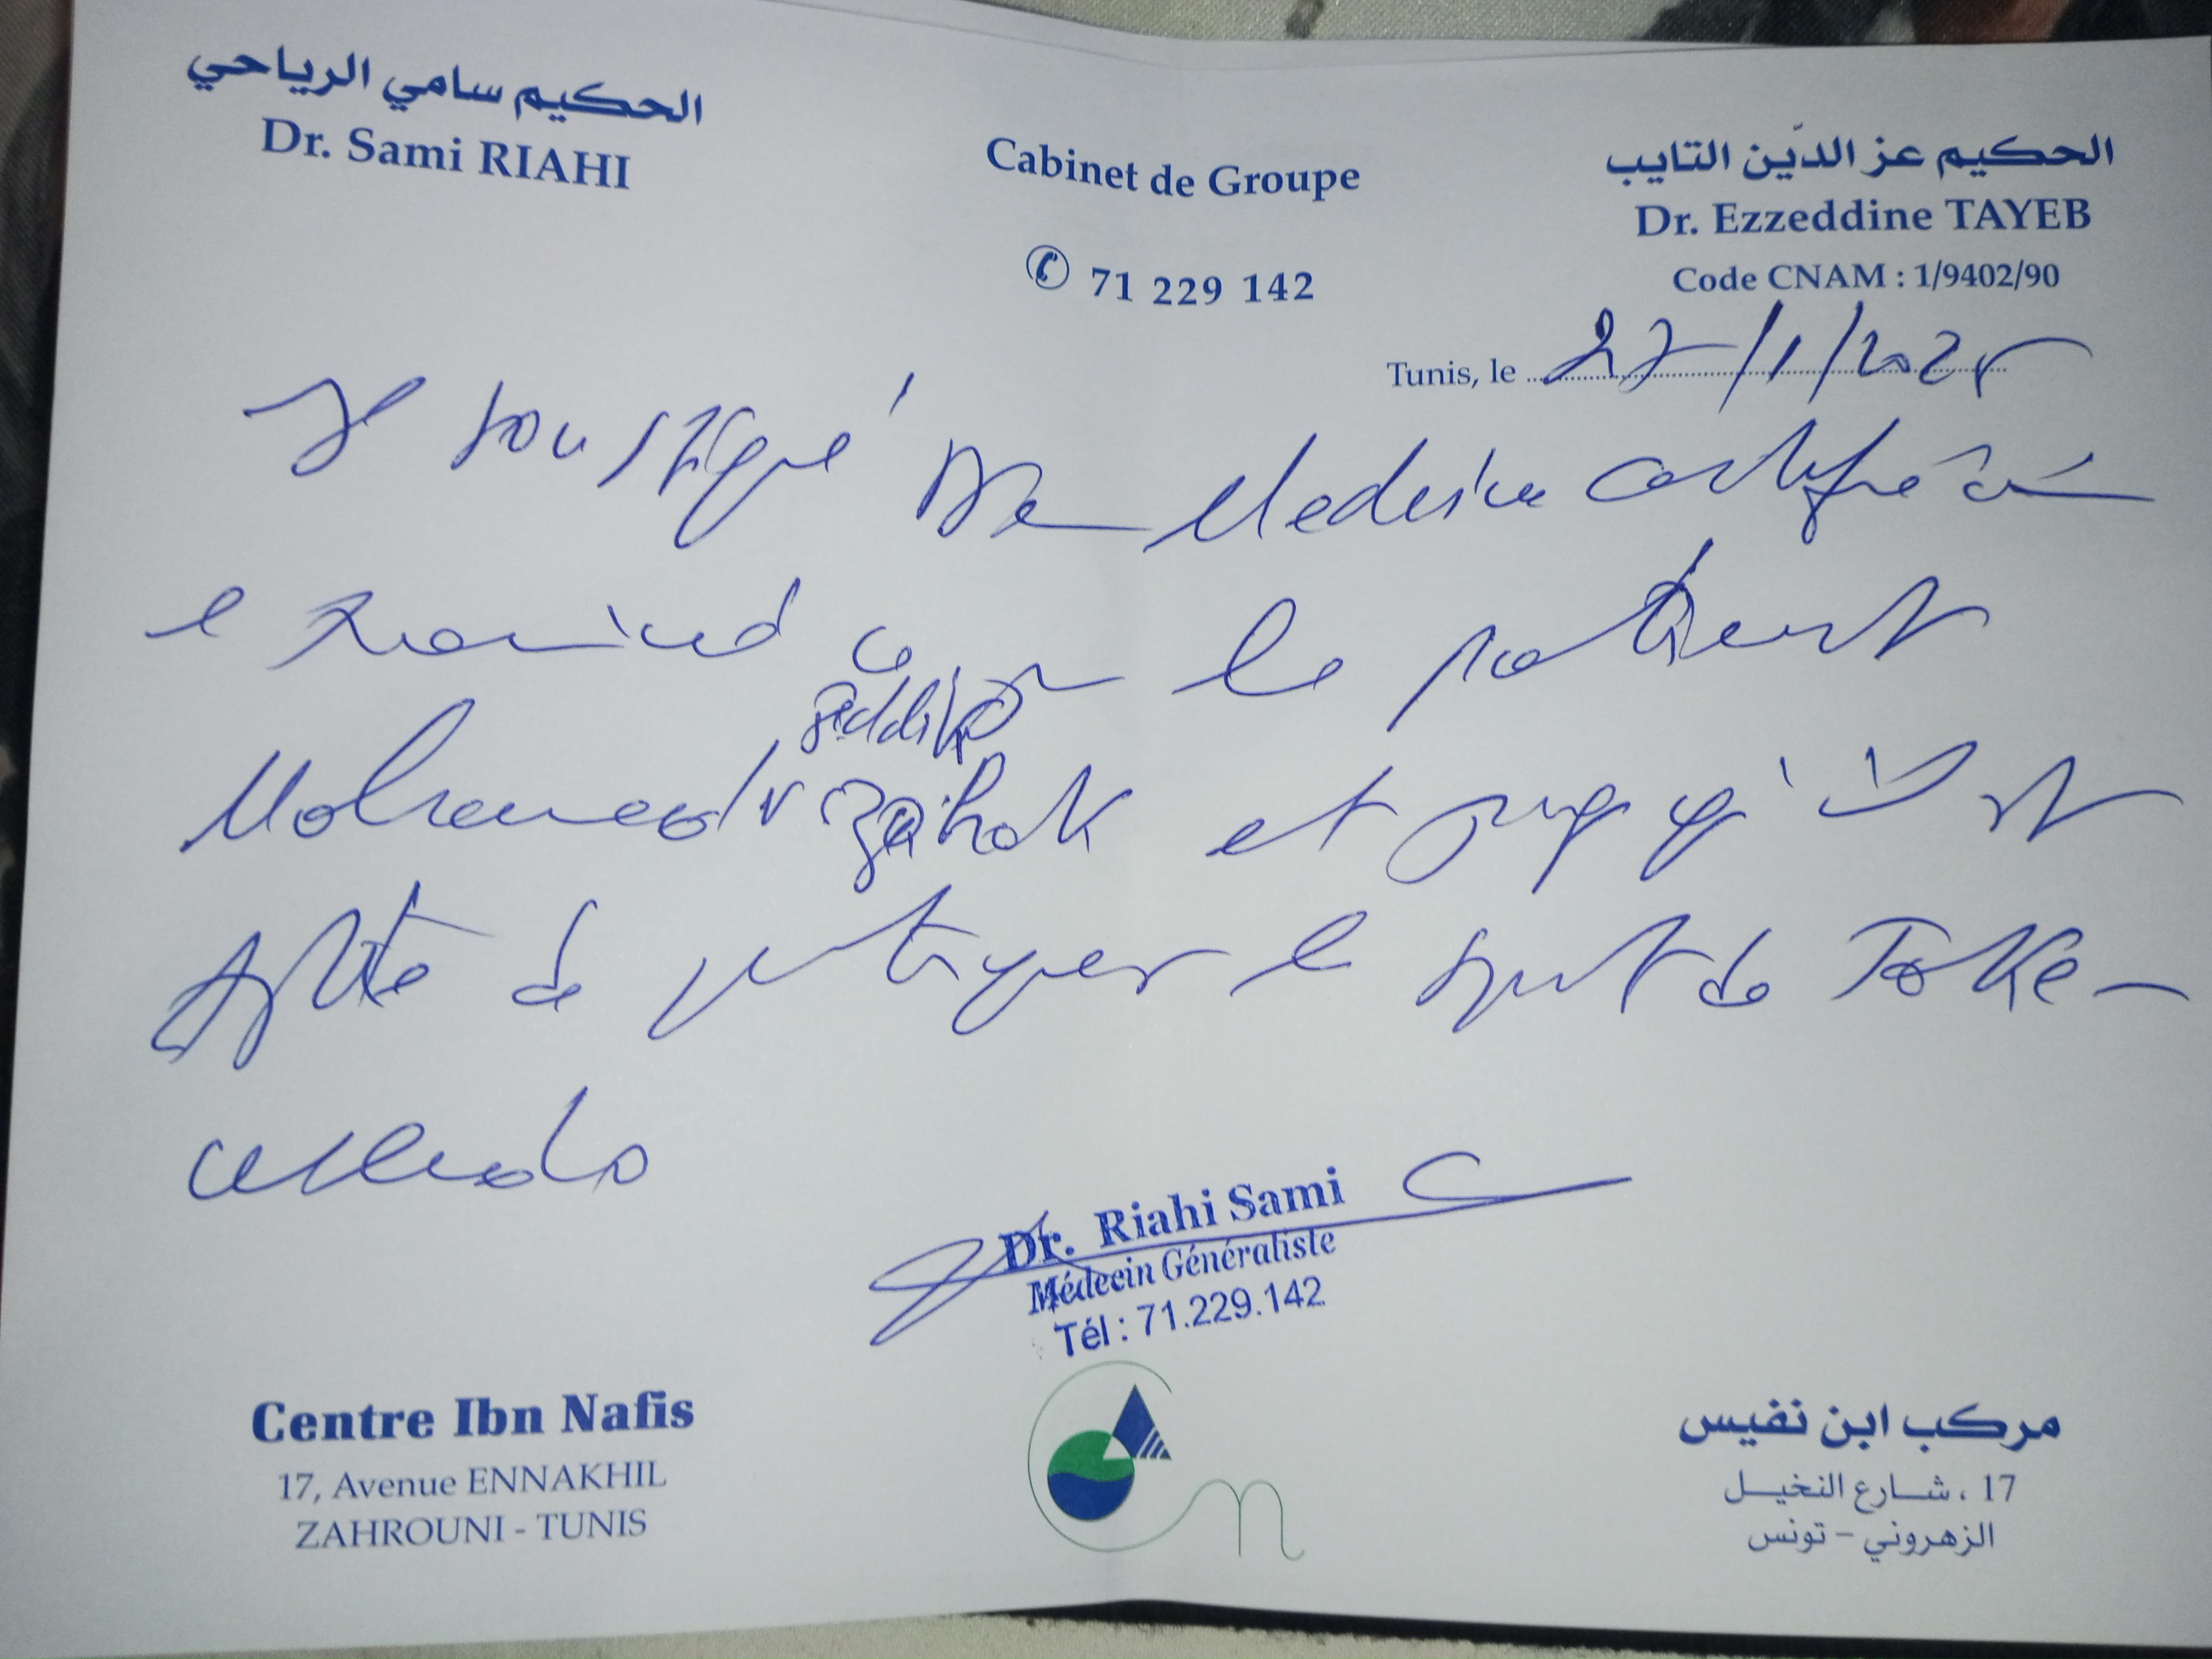 الحكيم سامي الرياحي
Dr. Sami RIAHI
Cabinet de Groupe
71 229 142
الحكيم عز الدّين التايب
Dr. Ezzeddine TAYEB
Code CNAM : 1/9402/90
Tunis, le 27/1/2025
Je soussigné Dr Medecine certifie avoir
examiné ce jour le patient
Seddik
Mohamed et juge qu'il est
Apte de pratiquer le sport de Take-
Dr. Riahi Sami
Médecin Généraliste
Tél : 71.229.142
Centre Ibn Nafis
17, Avenue ENNAKHIL
ZAHROUNI - TUNIS
مركب ابن نفيس
17 ، شارع النخيل
الزهروني - تونس